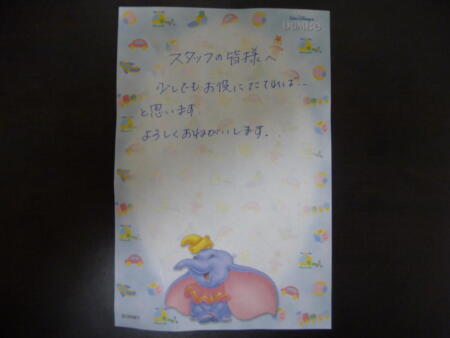 Walt Disney's
DUMBO
スタッフの皆様へ
少しでもお役にたてれば...
と思います.
よろしくおねがいします..
©DISNEY